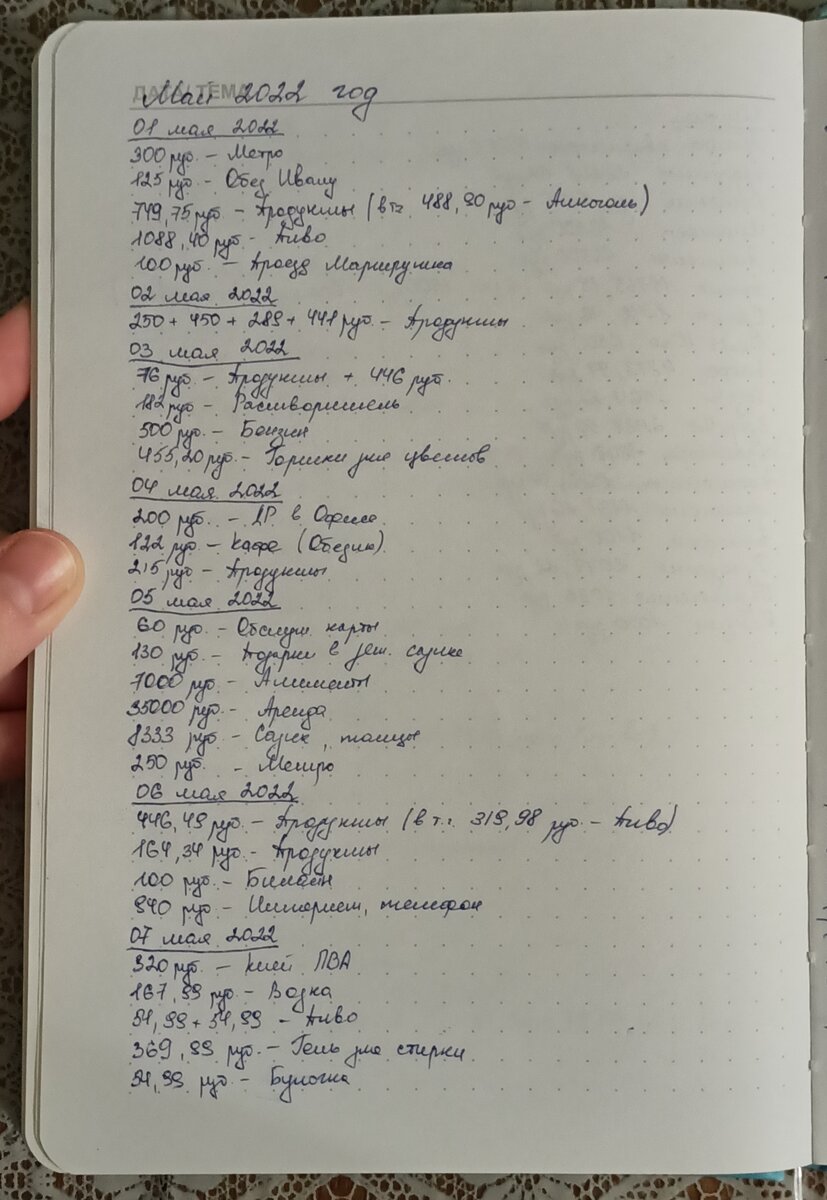 ДАТА/ТЕМА
Май 2022 год
01 мая 2022
300 руб. – Метро
125 руб. – Обед Ивану
749,75 руб – Продукты (в т.ч 488,90 руб – Алкоголь)
1088,40 руб – Пиво
100 руб. – Проезд Маршрутка
02 мая 2022
250 + 450 + 289 + 441 руб. – Продукты
03 мая 2022
76 руб. – Продукты + 446 руб.
182 руб. – Растворитель
500 руб. – Бензин
455,20 руб. – Горшки для цветов
04 мая 2022
200 руб. – ДР. в Офисе
122 руб. – Кафе (Обедик)
215 руб – Продукты
05 мая 2022
60 руб. – Обслуж. карты
130 руб. – Подарки в дет. садике
7000 руб. – Алименты
35000 руб. – Аренда
8333 руб – Садик, танцы
250 руб. – Метро
06 мая 2022
446,49 руб. – Продукты (в т.ч 319,98 руб – Пиво)
164,34 руб – Продукты
100 руб – Билайн
940 руб – Интернет, телефон
07 мая 2022
320 руб. – Клей ПВА
167,99 руб – Водка
51,99 + 54,99 – Пиво
369,99 руб. – Гель для стирки
54,99 руб – Булочка